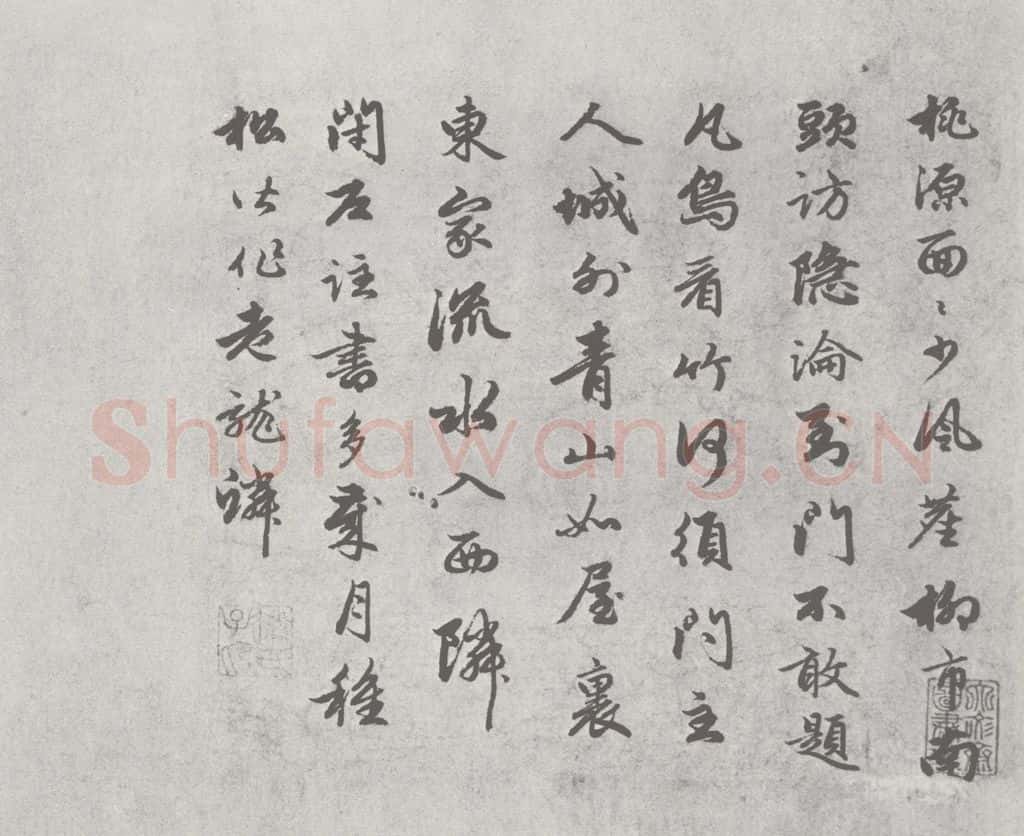 桃源面〻少風塵柳市南
頭訪隱淪到門不敢題
凡鳥看竹何須問主
人城外青山如屋裏
東家流水入西隣
閉户註書多歲月種
松皆作老龍鱗
Shufawang.CN